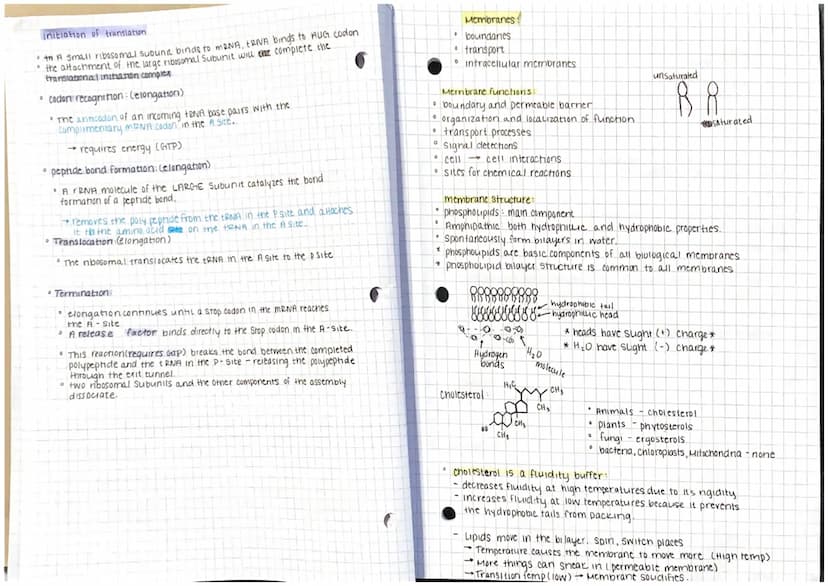 initiation of translation
• A small ribosomal subunit binds to mRNA, tRNA binds to AUG codon
• the attachment of the large ribosomal subunit will complete the
translational initiation complex
• codon recognition: (elongation)
• The anticodon of an incoming tRNA base pairs with the
complimentary mRNA codon in the A site.
→ requires energy (GTP)
• peptide bond formation: (elongation)
• A rRNA molecule of the LARGE subunit catalyzes the bond
formation of a peptide bond.
→ removes the polypeptide from the tRNA in the P site and attaches
it to the amino acid on the tRNA in the A site.
• Translocation (elongation)
• The ribosomal translocates the tRNA in the A site to the P site
• Termination:
• elongation continues until a stop codon in the mRNA reaches
the A-site
• A release factor binds directly to the stop codon in the A-site.
• This reaction (requires GTP) breaks the bond between the completed
polypeptide and the tRNA in the P-site - releasing the polypeptide
through the exit tunnel.
• two ribosomal subunits and the other components of the assembly
dissociate.
Membranes:
• boundaries
• transport
• intracellular membranes
Membrane functions:
• boundary and permeable barrier
• organization and localization of function
• transport processes
• signal detections
• cell → cell interactions
• sites for chemical reactions
unsaturated
saturated
membrane structure:
• phospholipids: main component
• Amphipathic: both hydrophilic and hydrophobic properties.
• spontaneously form bilayers in water.
* phospholipids are basic components of all biological membranes
* phospholipid bilayer structure is common to all membranes
hydrophobic tail
hydrophillic head
* heads have slight (+) charge *
* H₂O have slight (-) charge *
Hydrogen
bonds
H₂O
molecule
cholesterol
H₃C
CH₃
CH₃
CH₃
HO
CH₃
• Animals - cholesterol
• plants - phytosterols
• fungi - ergosterols
• bacteria, chloroplasts, Mitochondria - none
• cholesterol is a fluidity buffer:
- decreases fluidity at high temperatures due to its rigidity
- increases fluidity at low temperatures because it prevents
the hydrophobic tails from packing.
- Lipids move in the bilayer. Spin, switch places
→ Temperature causes the membrane to move more (High temp)
→ More things can sneak in (permeable membrane)
→ Transition temp (low) → Membrane solidifies.